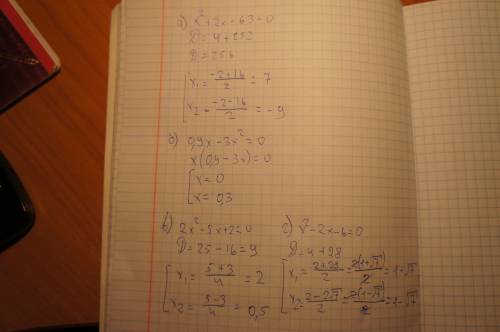 а) x² + 2x - 63 = 0
D = 4 + 252
D = 256
x₁ = (-2+16)/2 = 7
x₂ = (-2-16)/2 = -9
б) 0,9x - 3x² = 0
x(0,9 - 3x) = 0
x = 0
x = 0,3
в) 2x² - 5x + 2 = 0
D = 25 - 16 = 9
x₁ = (5+3)/4 = 2
x₂ = (5-3)/4 = 0,5
г) x² - 2x - 6 = 0
D = 4 + 28
x₂ = (2-2√7)/2 = 2(1-√7)/2 = 1-√7